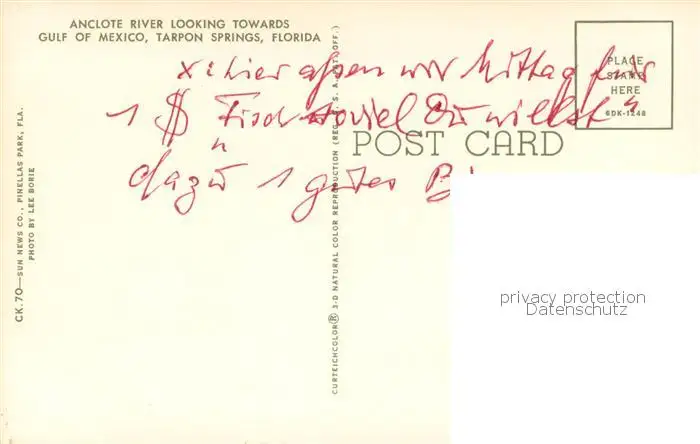 ANCLOTE RIVER LOOKING TOWARDS
GULF OF MEXICO, TARPON SPRINGS, FLORIDA
PLACE
STAMP
HERE
6DK-1248
x: hier aßen wir Mittag für
1 $ Fisch soviel Du willst"
POST CARD
dazu 1 gutes
CK.70—SUN NEWS CO., PINELLAS PARK, FLA.
PHOTO BY LEE BORIE
CURTEICHCOLOR® 3-D NATURAL COLOR REPRODUCTION (REG. U. S. A. PAT. OFF.)
privacy protection
Datenschutz